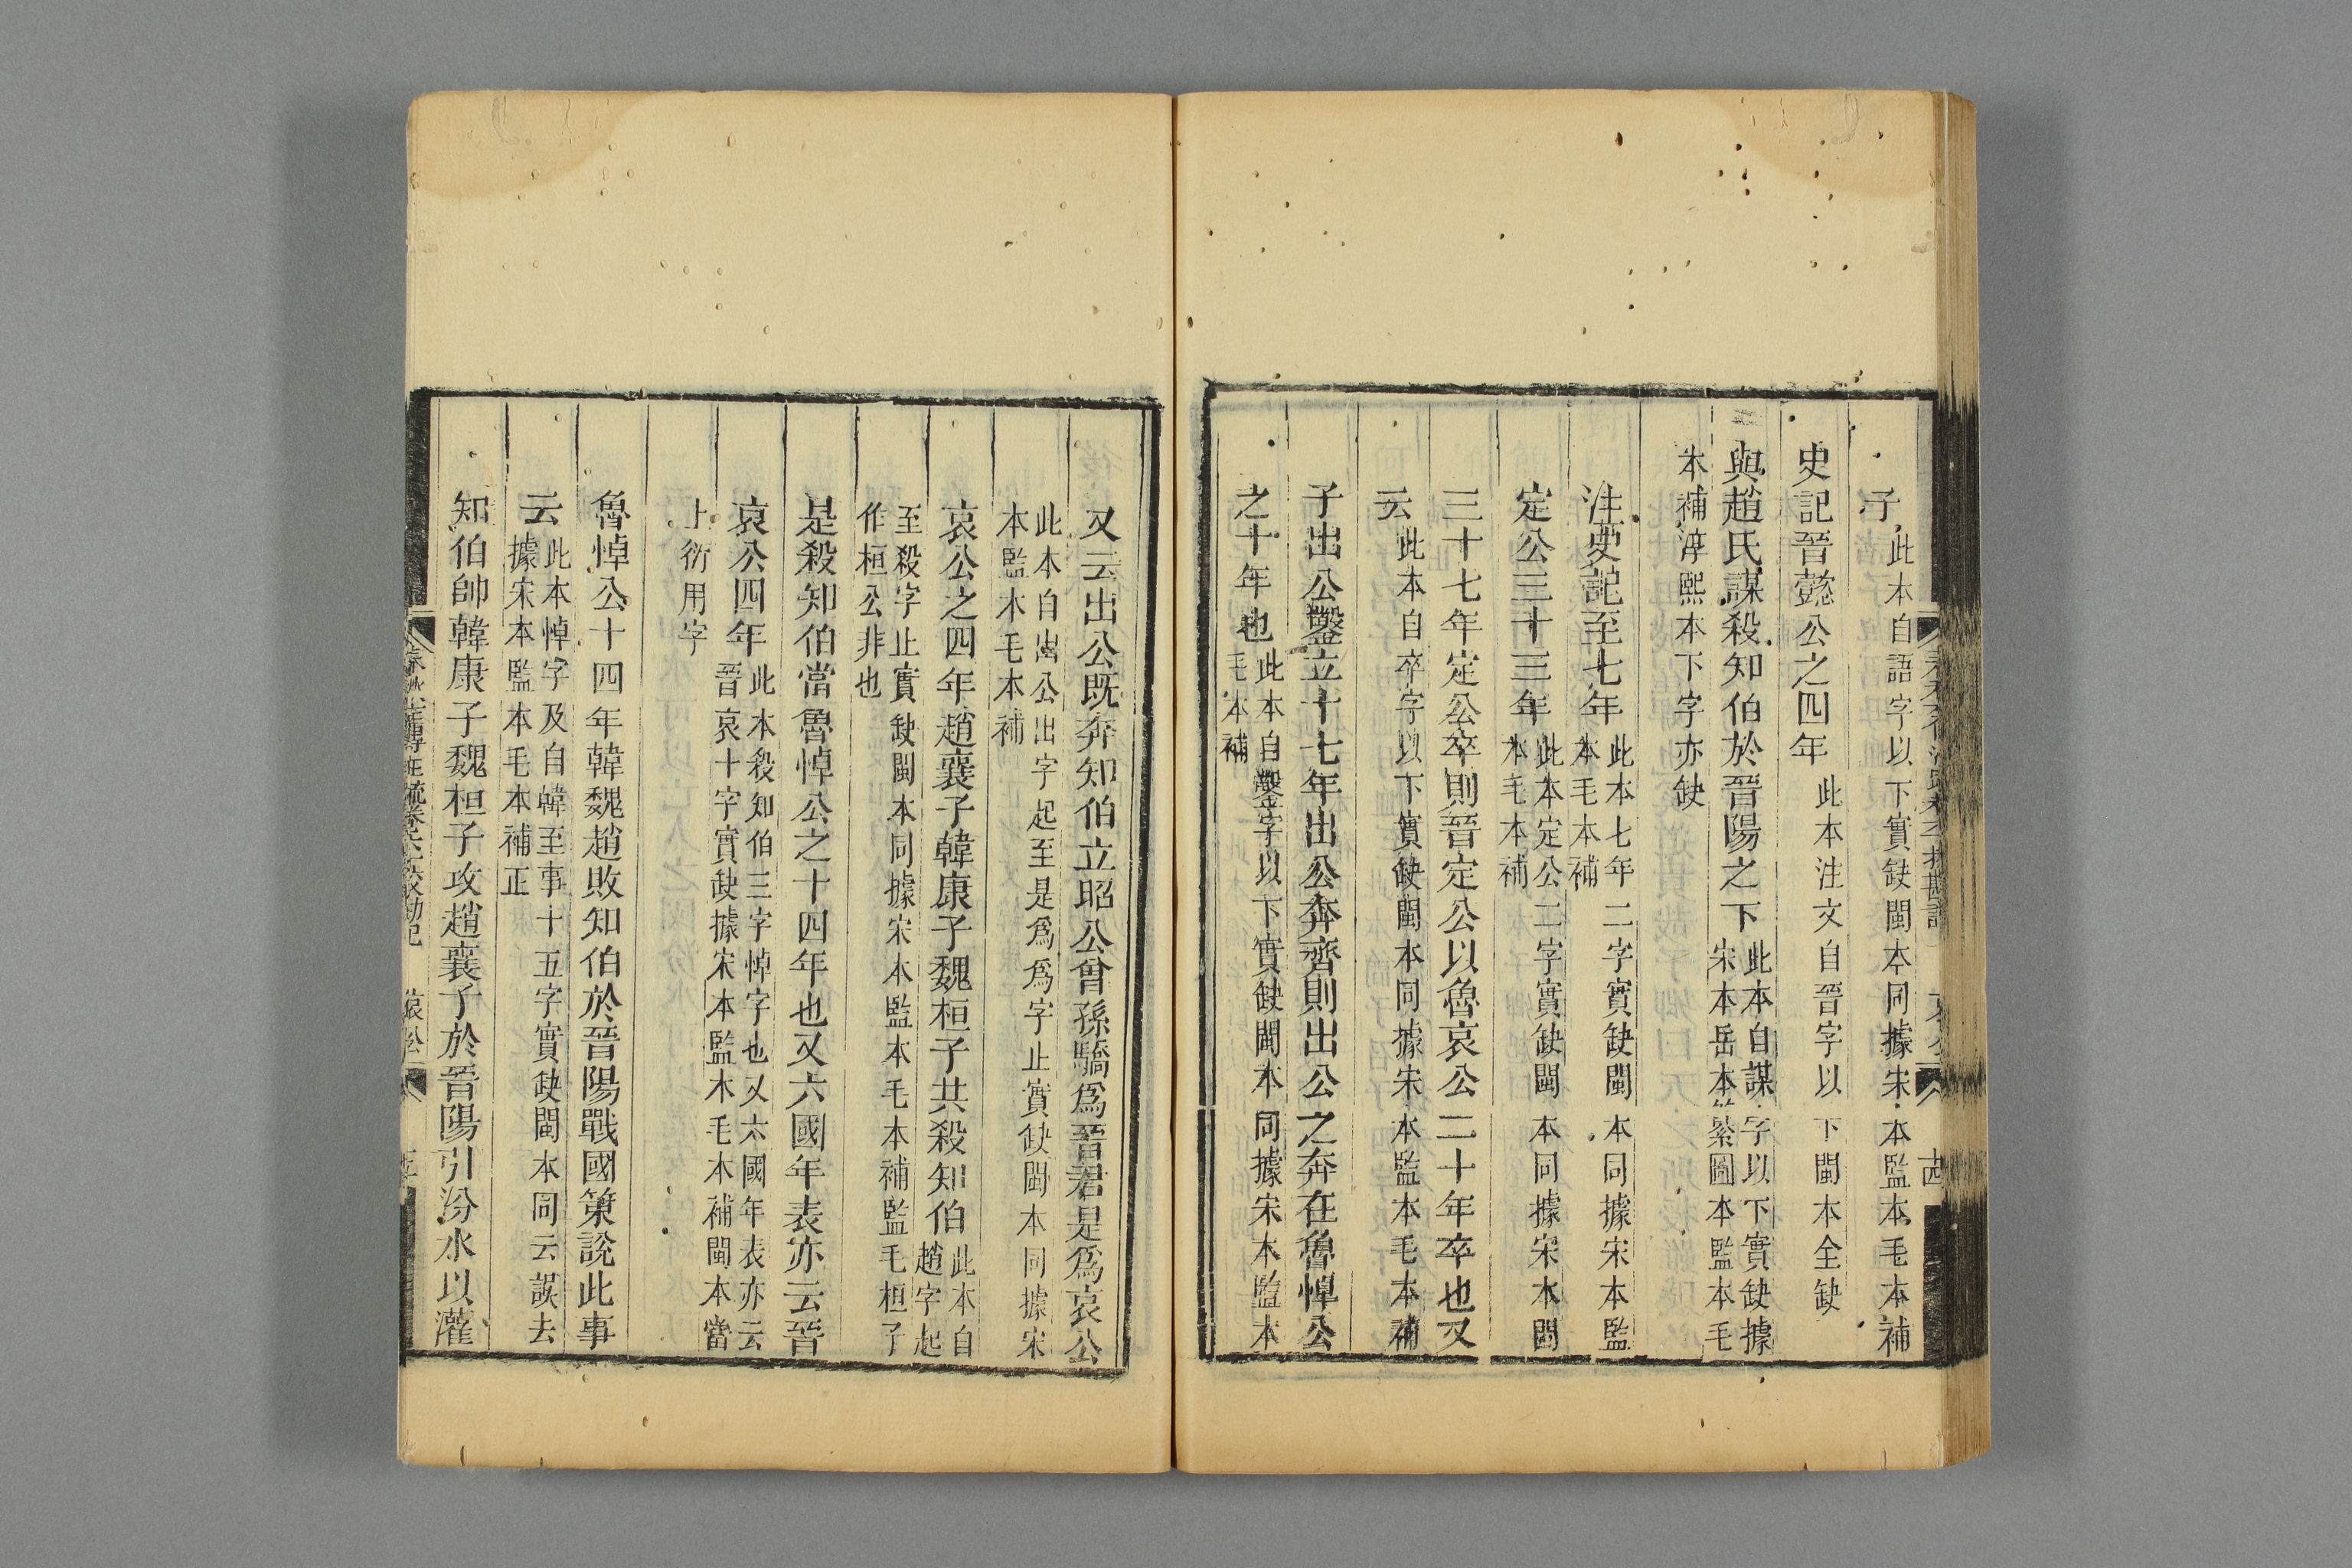 子此本自語字以下實缺閩本同據宋本監本毛本補
史記晉懿公之四年此本注文自晉字以下閩本全缺
與趙氏謀殺知伯於晉陽之下此本自謀字以下實缺據
宋本岳本纂圖本監本毛
本補淳熙本下字亦缺
注史記至七年此本七年二字實缺閩本同據宋本監
本毛本補
定公三十三年此本定公二字實缺閩本同據宋本閩
本毛本補
三十七年定公卒則晉定公以魯哀公二十年卒也又
云此本自卒字以下實缺閩本同據宋本監本毛本補
子出公鑿立十七年出公奔齊則出公之奔在魯悼公
之十年也此本自鑿字以下實缺閩本同據宋本監本
毛本補
又云出公既奔知伯立昭公曾孫驕爲晉君是爲哀公
此本自出公出字起至是爲爲字止實缺閩本同據宋
本監本毛本補
哀公之四年趙襄子韓康子魏桓子共殺知伯此本自
趙字起
至殺字止實缺閩本同據宋本監本毛本補監毛桓子
作桓公非也
是殺知伯當魯悼公之十四年也又六國年表亦云晉
哀公四年此本殺知伯三字悼字也又六國年表亦云
晉哀十字實缺據宋本監本毛本補閩本當
上衍用字
魯悼公十四年韓魏趙敗知伯於晉陽戰國策說此事
云此本悼字及自韓至事十五字實缺閩本同云誤去
據宋本監本毛本補正
知伯帥韓康子魏桓子攻趙襄子於晉陽引汾水以灌